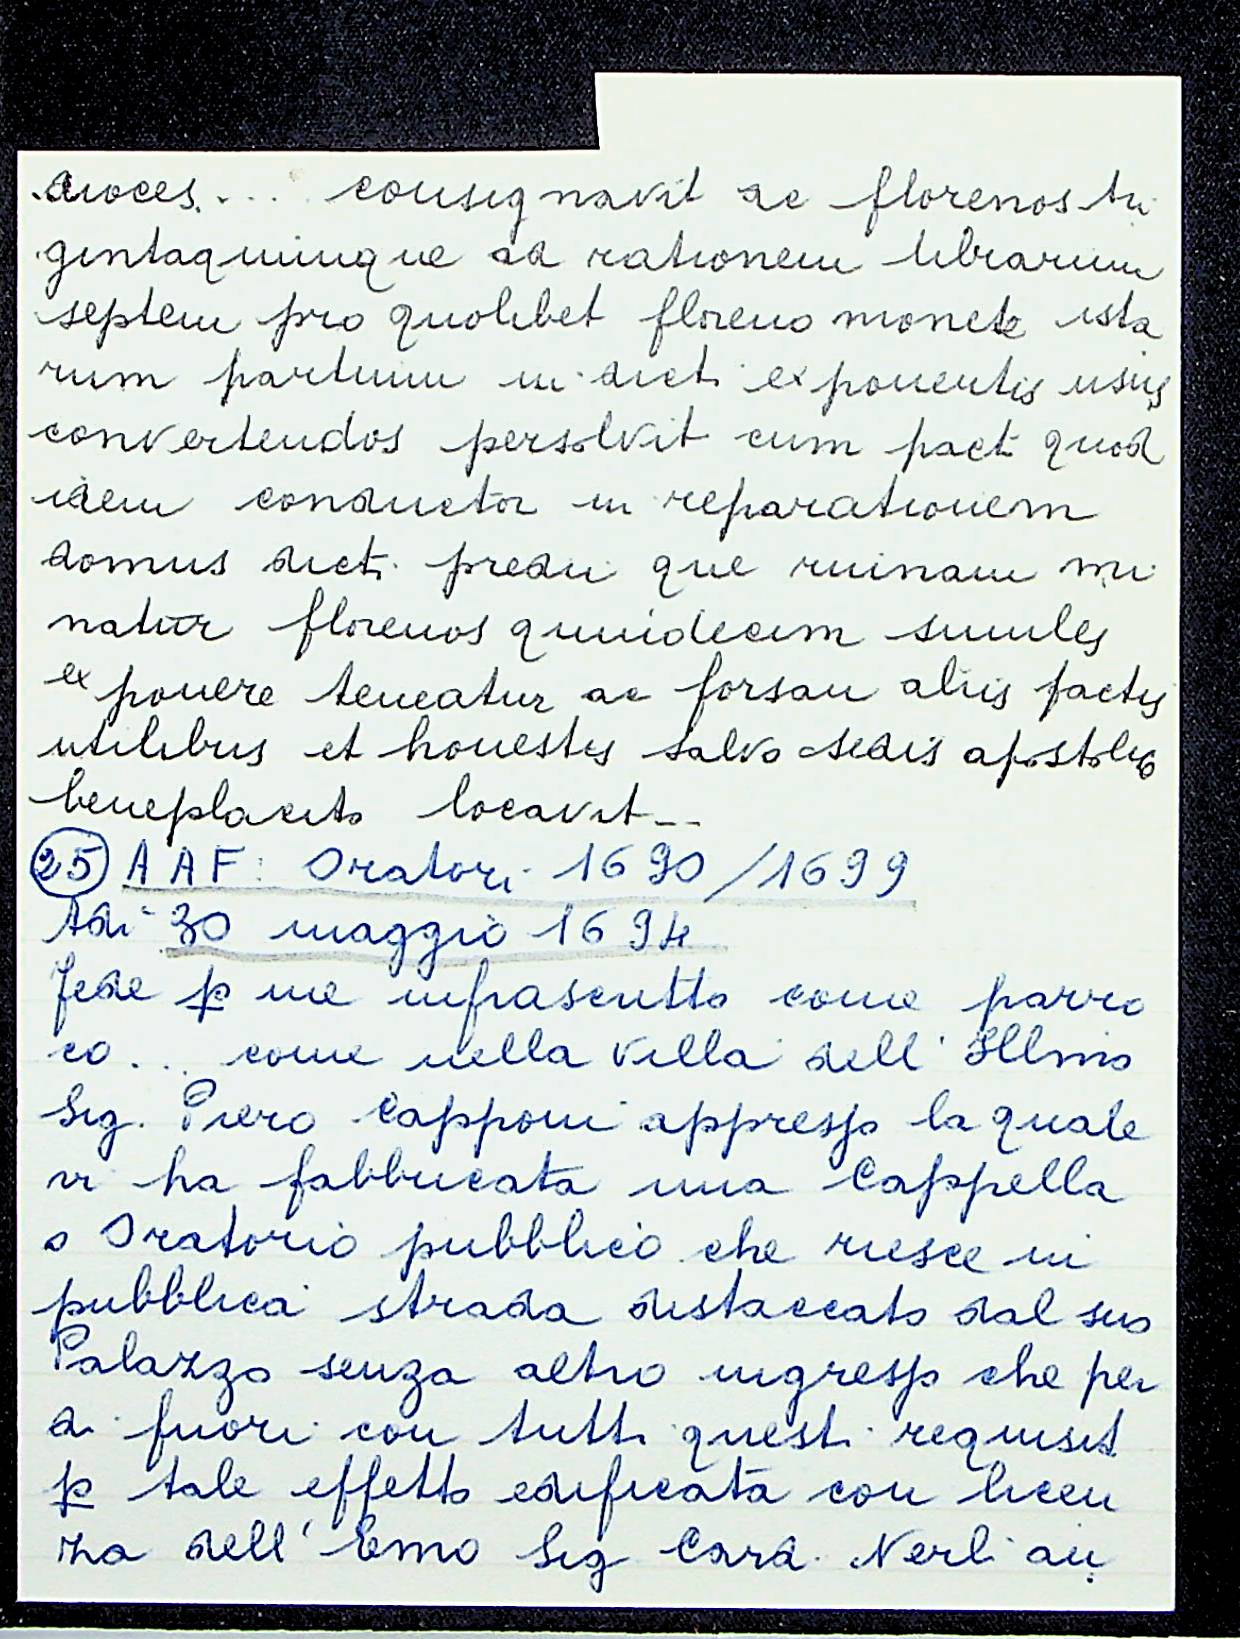 dioces. ... consignavit ac florenos tri
gintaquinque ad rationem librarum
septem pro quolibet floreno monete ista
rum partium in dicti exponentis usus
convertendos persolvit cum pacti quod
idem conductor in reparationem
domus dicti predii que ruinam mi
natur florenos quindecim similes
exponere teneatur ac forsan aliis pactis
utilibus et honestis salvo sedis apostolice
beneplacito locavit --
25 AAF: Oratori 1690/1699
Adi 30 maggio 1694
Fede p me infrascritto come parro
co... come nella Villa dell' Illmo
Sig. Piero Capponi appresso la quale
vi ha fabbricata una Cappella
o Oratorio pubblico che riesce in
pubblica strada distaccato dal suo
Palazzo senza altro ingresso che per
di fuori con tutti questi requisiti
p tale effetto edificata con licen
za dell' Emo Sig Card. Nerli an